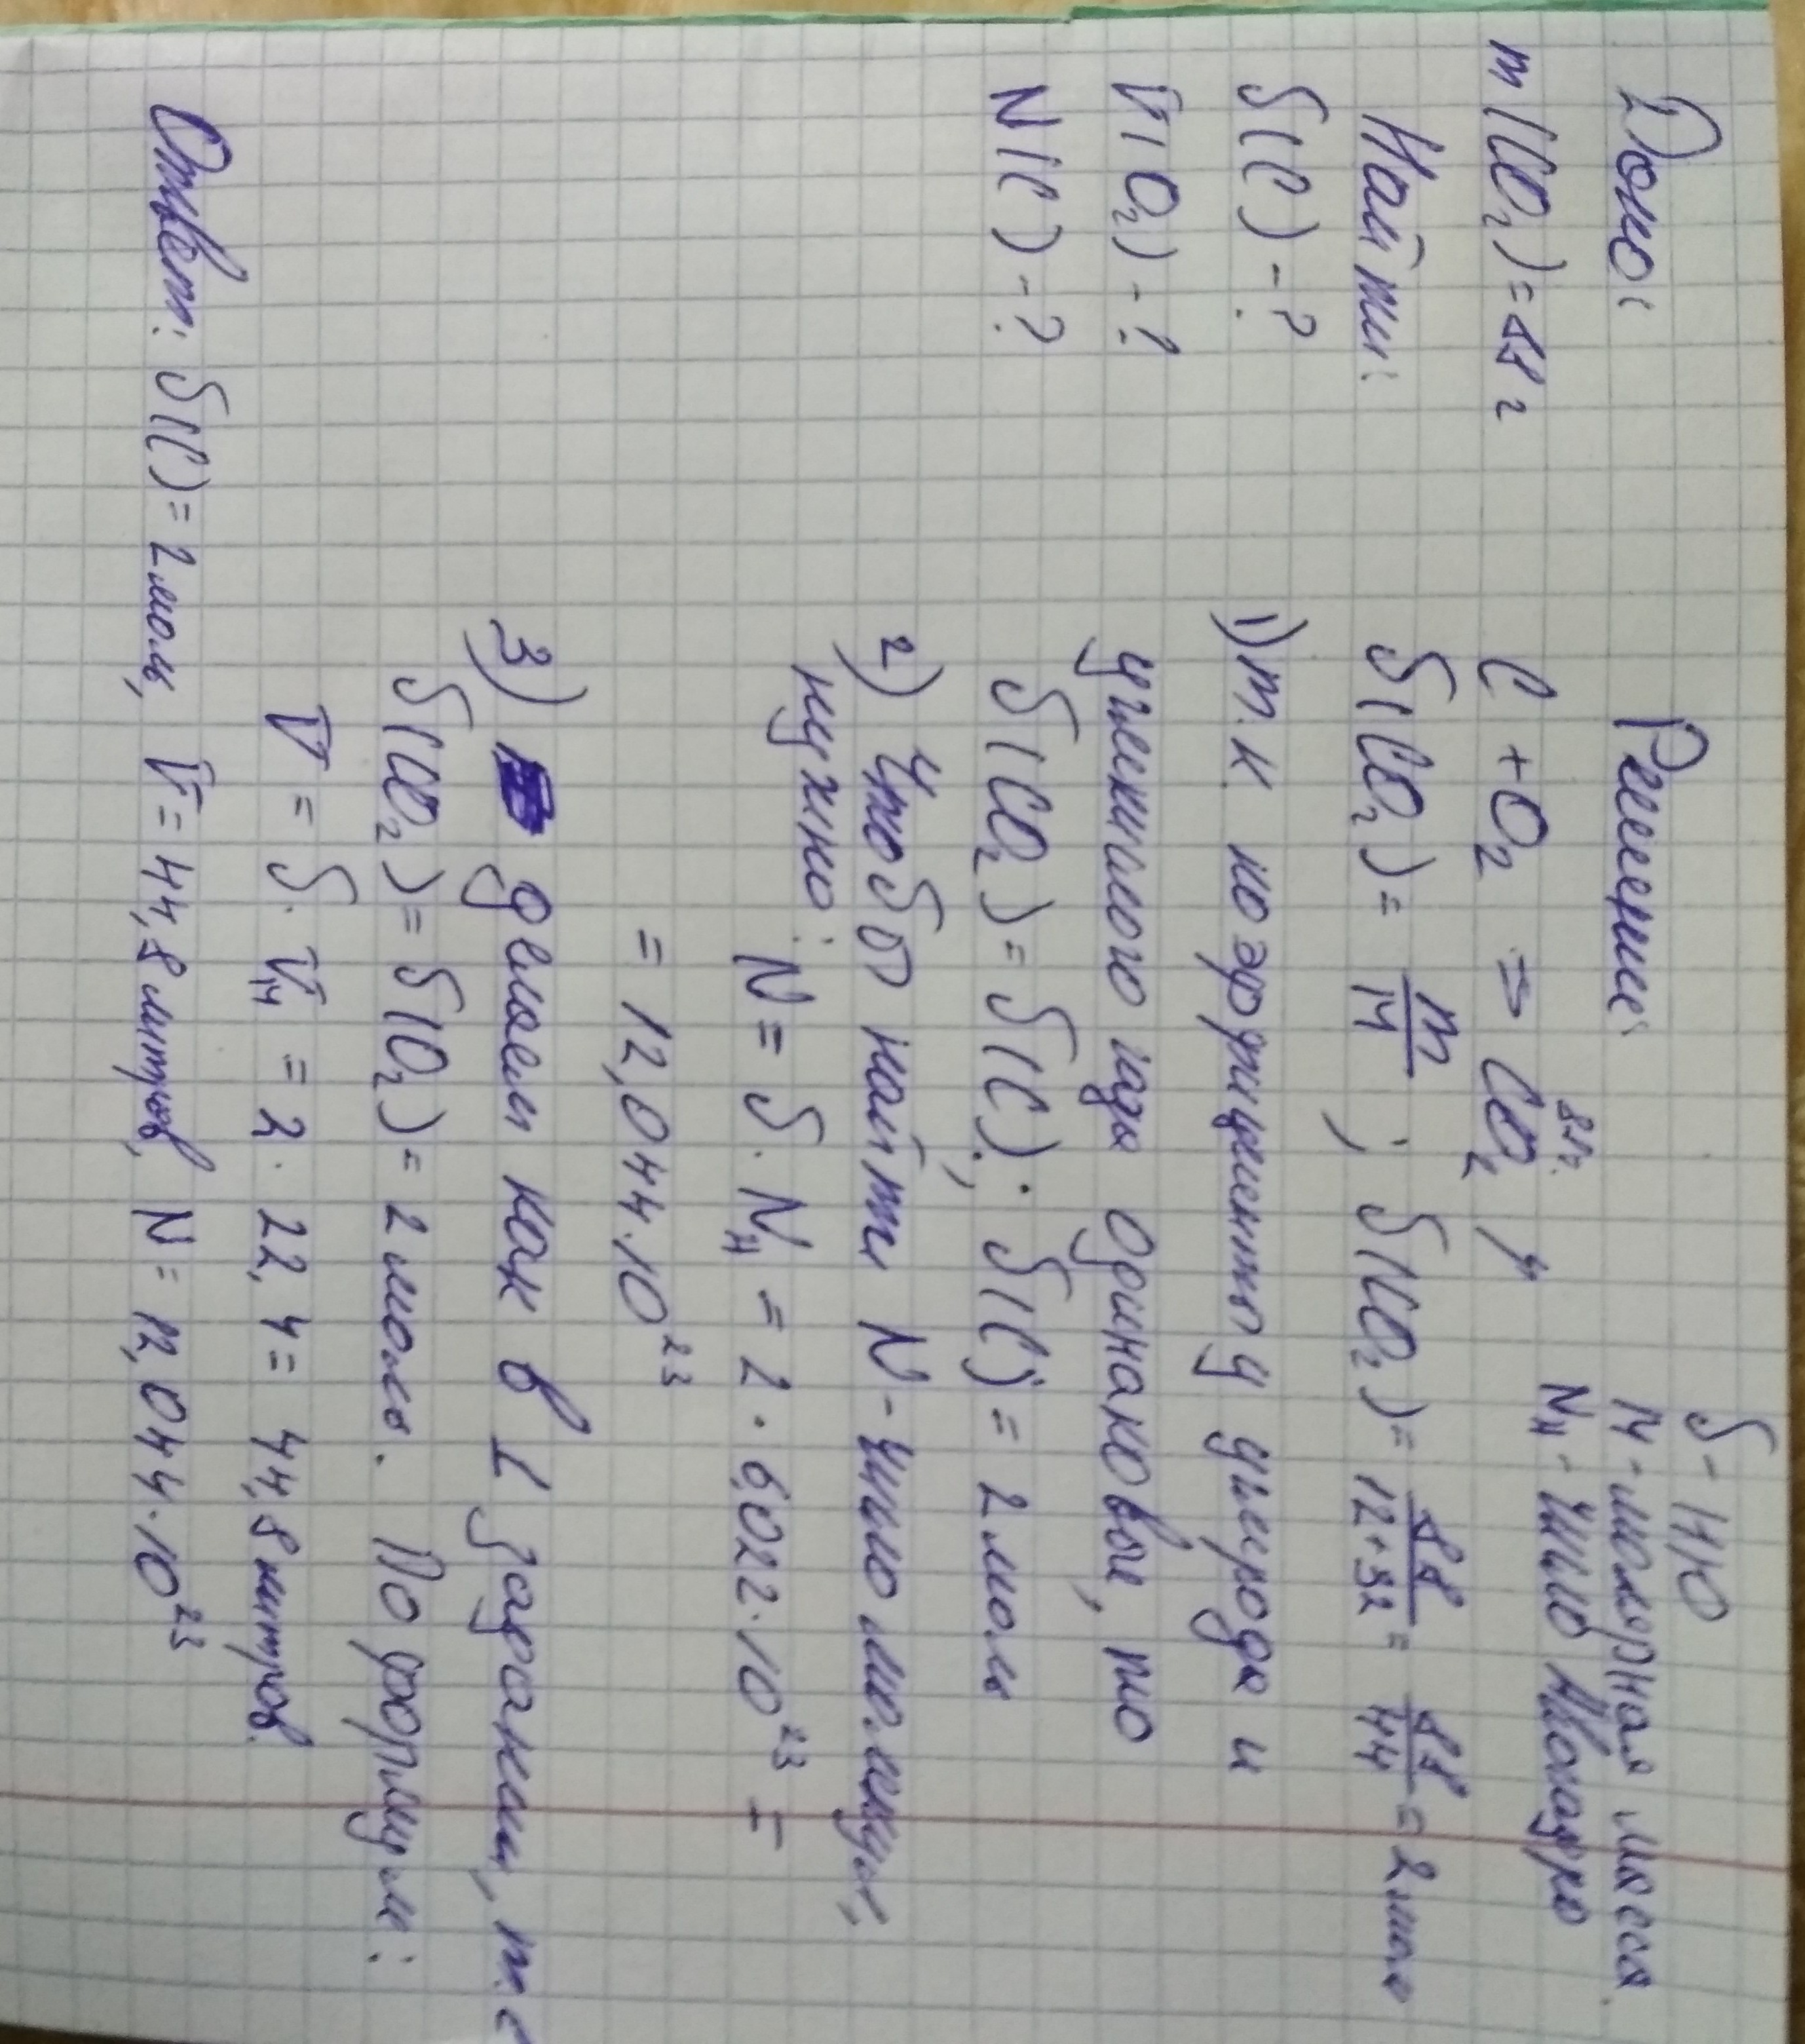 Дано:
m(CO₂)=88 г
Найти:
δ(C)-?
V(O₂)-?
N(C)-?
Решение:
δ - Ню
M - молярная масса.
N_A - Число Авогадро
88г.
C + O₂ => CO₂
δ(CO₂) = m/M ; δ(CO₂) = 88/12+32 = 88/44 = 2 моль
1) т. к коэффициенты у углерода и
углекислого газа одинаковы, то
δ(CO₂) = δ(C); δ(C) = 2 моль
2) Чтобы найти N - число молекул,
нужно: N = δ · N_A = 2 · 6,022·10²³ =
= 12,044·10²³
3) делаем как в 1 задании, т.е
δ(CO₂) = δ(O₂) = 2 моль. По формуле:
V = δ · V_M = 2 · 22,4 = 44,8 литров.
Ответ: δ(C) = 2 моль, V = 44,8 литров, N = 12,044·10²³